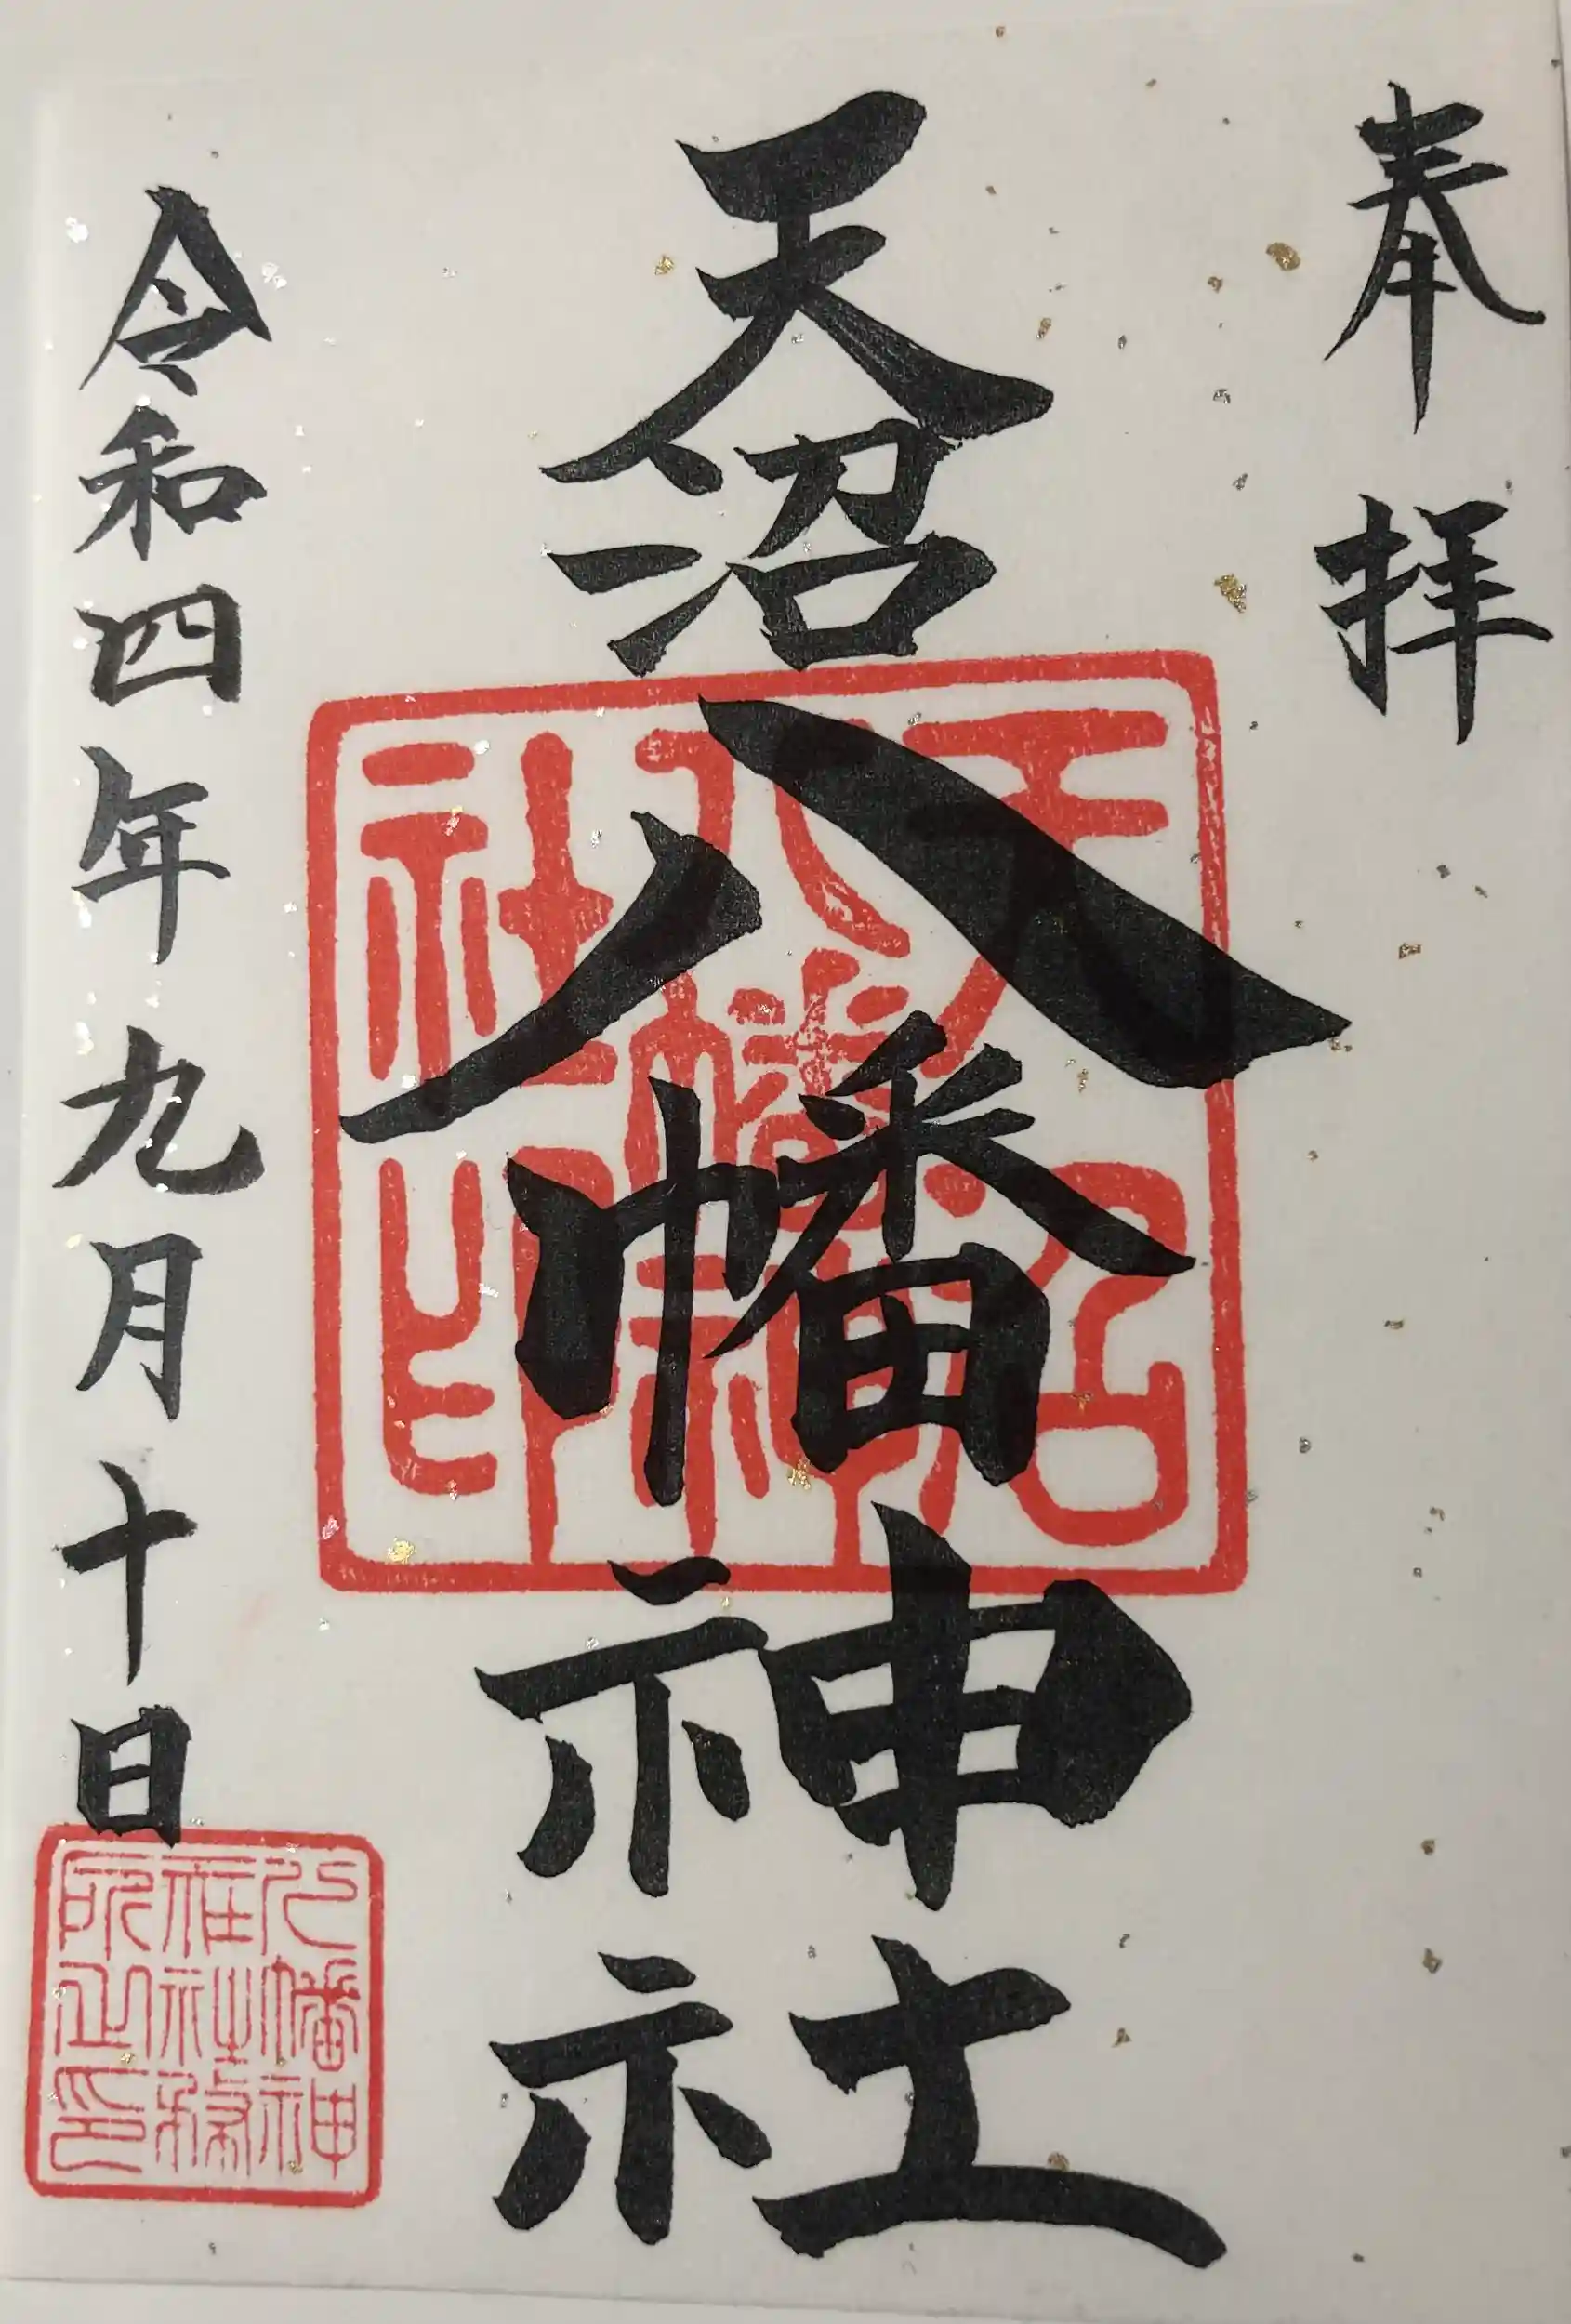 奉拝
天沼八幡神社
令和四年九月十日
天沼八幡神社印
八幡神社社務所之印